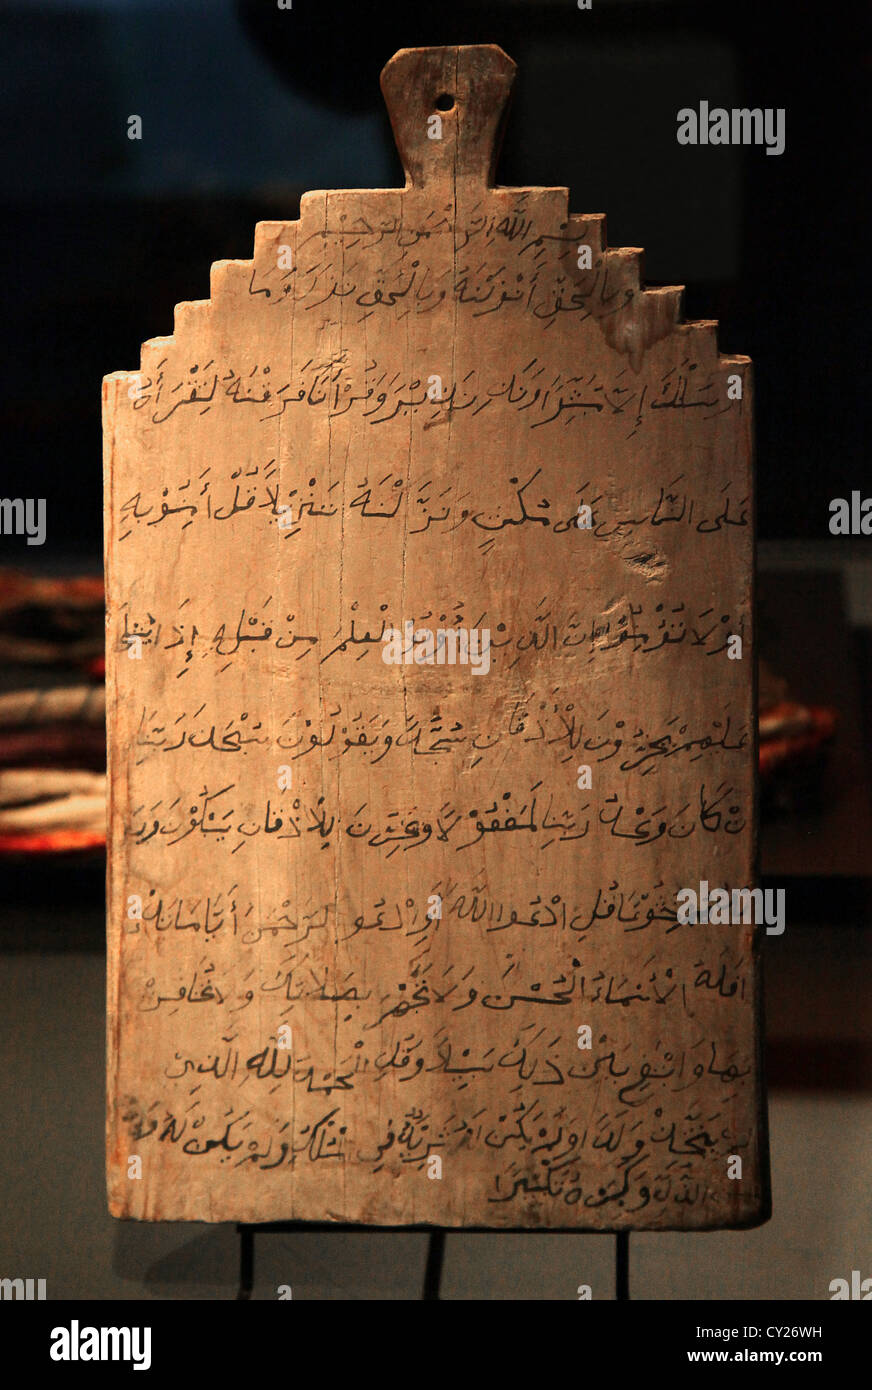 بِسْمِ اللَّهِ الرَّحْمَنِ الرَّحِيمِ
وَبِالْحَقِّ أَنْزَلْنَهُ وَبِالْحَقِّ نَزَلَ وَمَا
أَرْسَلْنَكَ إِلَّا مُبَشِّرًا وَنَذِيرًا وَقُرْأَنًا فَرَقْنَهُ لِتَقْرَأَهُ
عَلَى النَّاسِ عَلَى مُكْثٍ وَنَزَّلْنَهُ تَنْزِيلًا قُلْ أَمِنُوْ بِهِ
أَوْ لَا تُؤْمِنُوا إِنَّ الَّذِينَ أُوْتُوا الْعِلْمَ مِنْ قَبْلِهِ إِذَا يُتْلَى
عَلَيْهِمْ يَخِرُّوْنَ لِلْأَذْقَانِ سُجَّدًا وَيَقُولُوْنَ سُبْحَنَ رَبِّنَا
نْ كَانَ وَعْدُ رَبِّنَا لَمَفْعُوْلًا وَيَخِرُّونَ لِلْأَذْقَانِ يَبْكُوْنَ وَيَ
قُلِ ادْعُوا اللَّهَ أَوِ ادْعُو الرَّحْمَنَ أَيًّامَا
فَلَهُ الْأَسْمَاءُ الْحُسْنَى وَلَا تَجْهَرْ بِصَلَاتِكَ وَلَا تُخَافِتْ
بِهَا وَابْتَغِ بَيْنَ ذَلِكَ سَبِيلًا وَقُلِ الْحَمْدُ لِلَّهِ الَّذِي
لَمْ يَتَّخِذْ وَلَدًا وَلَمْ يَكُنْ لَهُ شَرِيكٌ فِي الْمُلْكِ وَلَمْ يَكُنْ لَهُ
الذُّلِّ وَكَبِّرْهُ تَكْبِيرًا
alamy
Image ID: CY26WH
www.alamy.com